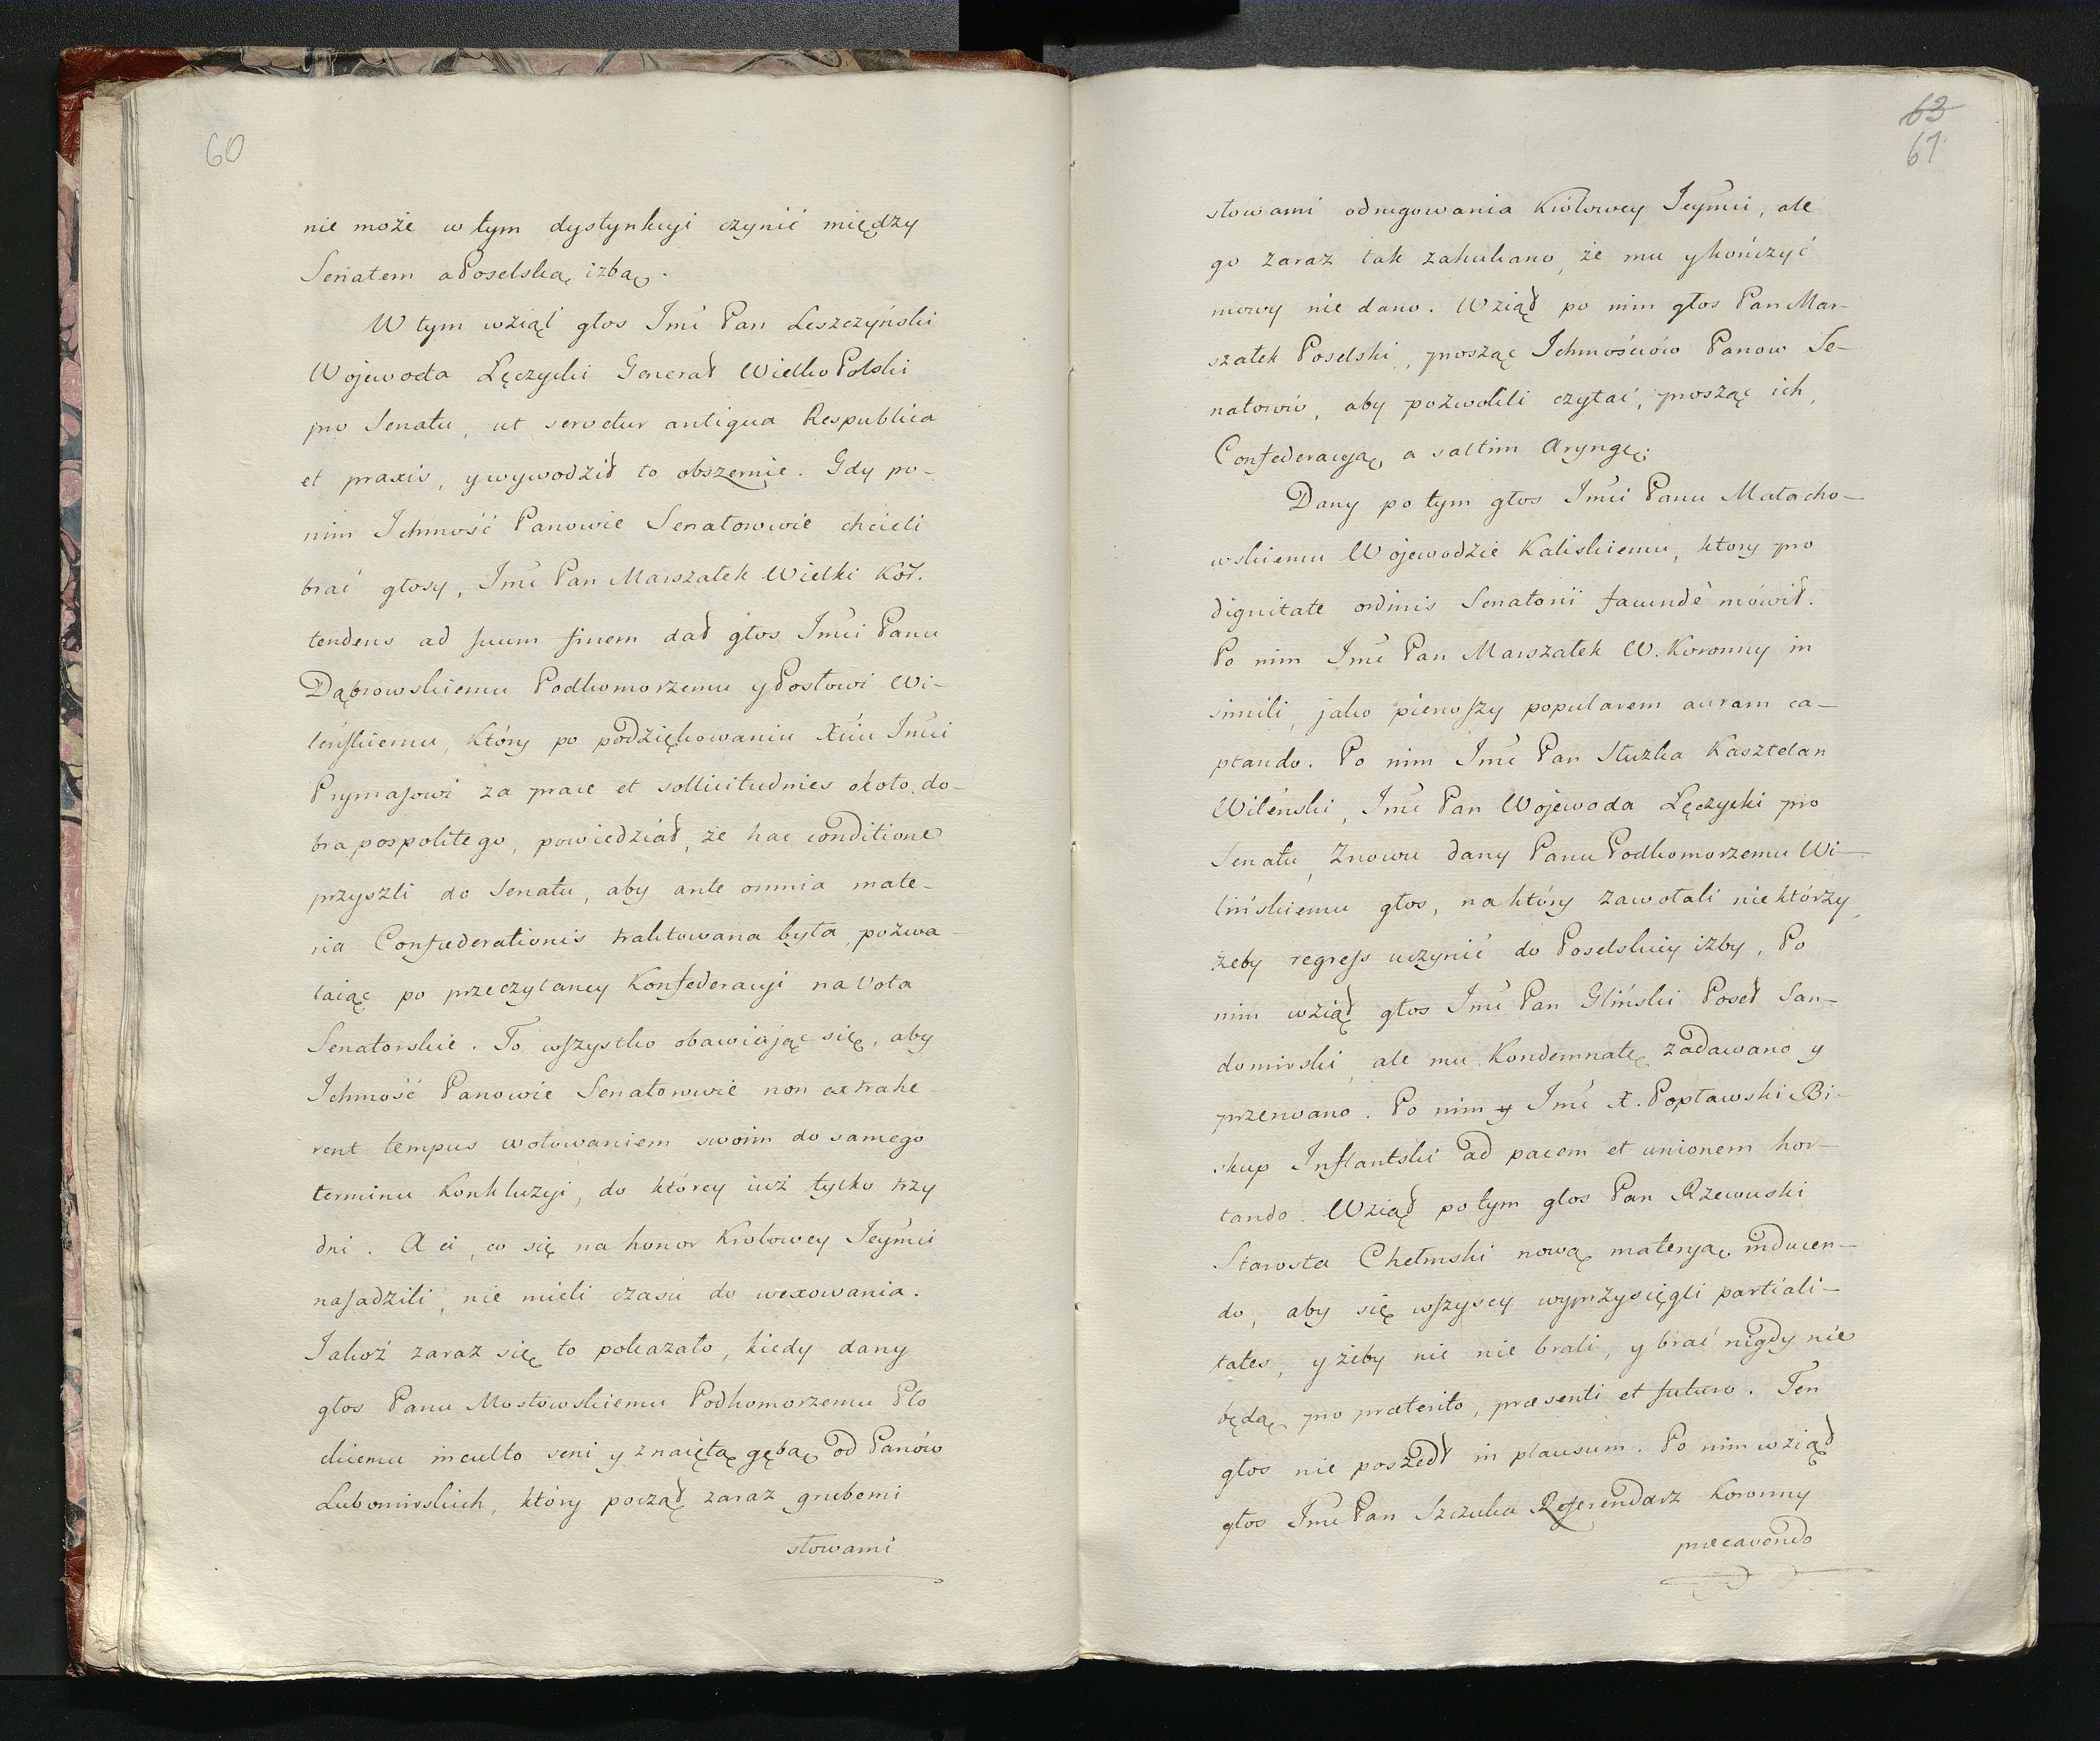 60
nie może w tym dystynkcyi czynić między
Senatem a Poselską izbą.
W tym wziął głos Jmć Pan Leszczyński
Wojewoda Łęczycki Generał WielkoPolski
pro Senatu, ut servetur antiqua Respublica
et praxis, y wywodził to obszernie. Gdy po-
nim Ichmość Panowie Senatorowie chcieli
brać głosy, Jmć Pan Marszałek Wielki Kor.
tendens ad suum finem dał głos Jmći Panu
Dąbrowskiemu Podkomorzemu y Posłowi Wi-
leńskiemu, który po podziękowaniu Xciu Jmći
Prymasowi za prace et sollicitudines około do-
bra pospolitego, powiedział, że hac conditione
przyszli do Senatu, aby ante omnia mate-
ria Confœderationis traktowana była, pozwa-
laiąc po przeczytaney Konfederacyi na Vota
Senatorskie. To wszystko obawiając się, aby
Ichmość Panowie Senatorowie non extrahe-
rent tempus wotowaniem swoim do samego
terminu Konkluzyi, do ktorey iuż tylko trzy
dni. A ci, co się na honor Krolowey Jeymći
nasadzili, nie mieli czasu do wexowania.
Jakoż zaraz się to pokazało, kiedy dany
głos Panu Mostowskiemu Podkomorzemu Pło
ckiemu inculto seni y znaiętą gębą od Panów
Lubomirskich, który począł zaraz grubemi
słowami
63
61
słowami odrugowania Królowey Jeymći, ale
go zaraz tak zahukano, że mu y kończyć
mowy nie dano. Wziął po nim głos Pan Mar-
szałek Poselski, prosząc Ichmościów Panow Se-
natorów, aby pozwolili czytać, prosząc ich,
Confederacyą, a saltim Aryngę.
Dany po tym głos Jmći Panu Małacho-
wskiemu Wojewodzie Kaliskiemu, ktory pro
dignitate ordinis Senatorii facundè mówił.
Po nim Jmć Pan Marszałek W. Koronny in
simili, jako pierwszy popularem auram ca-
ptando. Po nim Jmć Pan Słuzka Kasztelan
Wileński, Jmć Pan Wojewoda Łęczycki pro
Senatu, Znowu dany Panu Podkomorzemu Wi-
lińskiemu głos, na który zawołali niektórzy,
żeby regress uczynić do Poselskiey izby, Po
nim wziął głos Jmć Pan Gliński Poseł San-
domirski, ale mu Kondemnatę zadawano y
przerwano. Po nim y Jmć X. Popławski Bi-
skup Inflantski ad pacem et unionem hor-
tando. Wziął po tym głos Pan Rżewuski
Starosta Chełmski nową materyą inducen-
do, aby się wszyscy wyprzysięgli partiali-
tates, y żeby nic nie brali, y brać nigdy nie
będą pro præterito, præsenti et futuro. Ten
głos nie poszedł in plausum. Po nim wziął
głos Jmć Pan Szczuka Referendarz Koronny
præcavendo